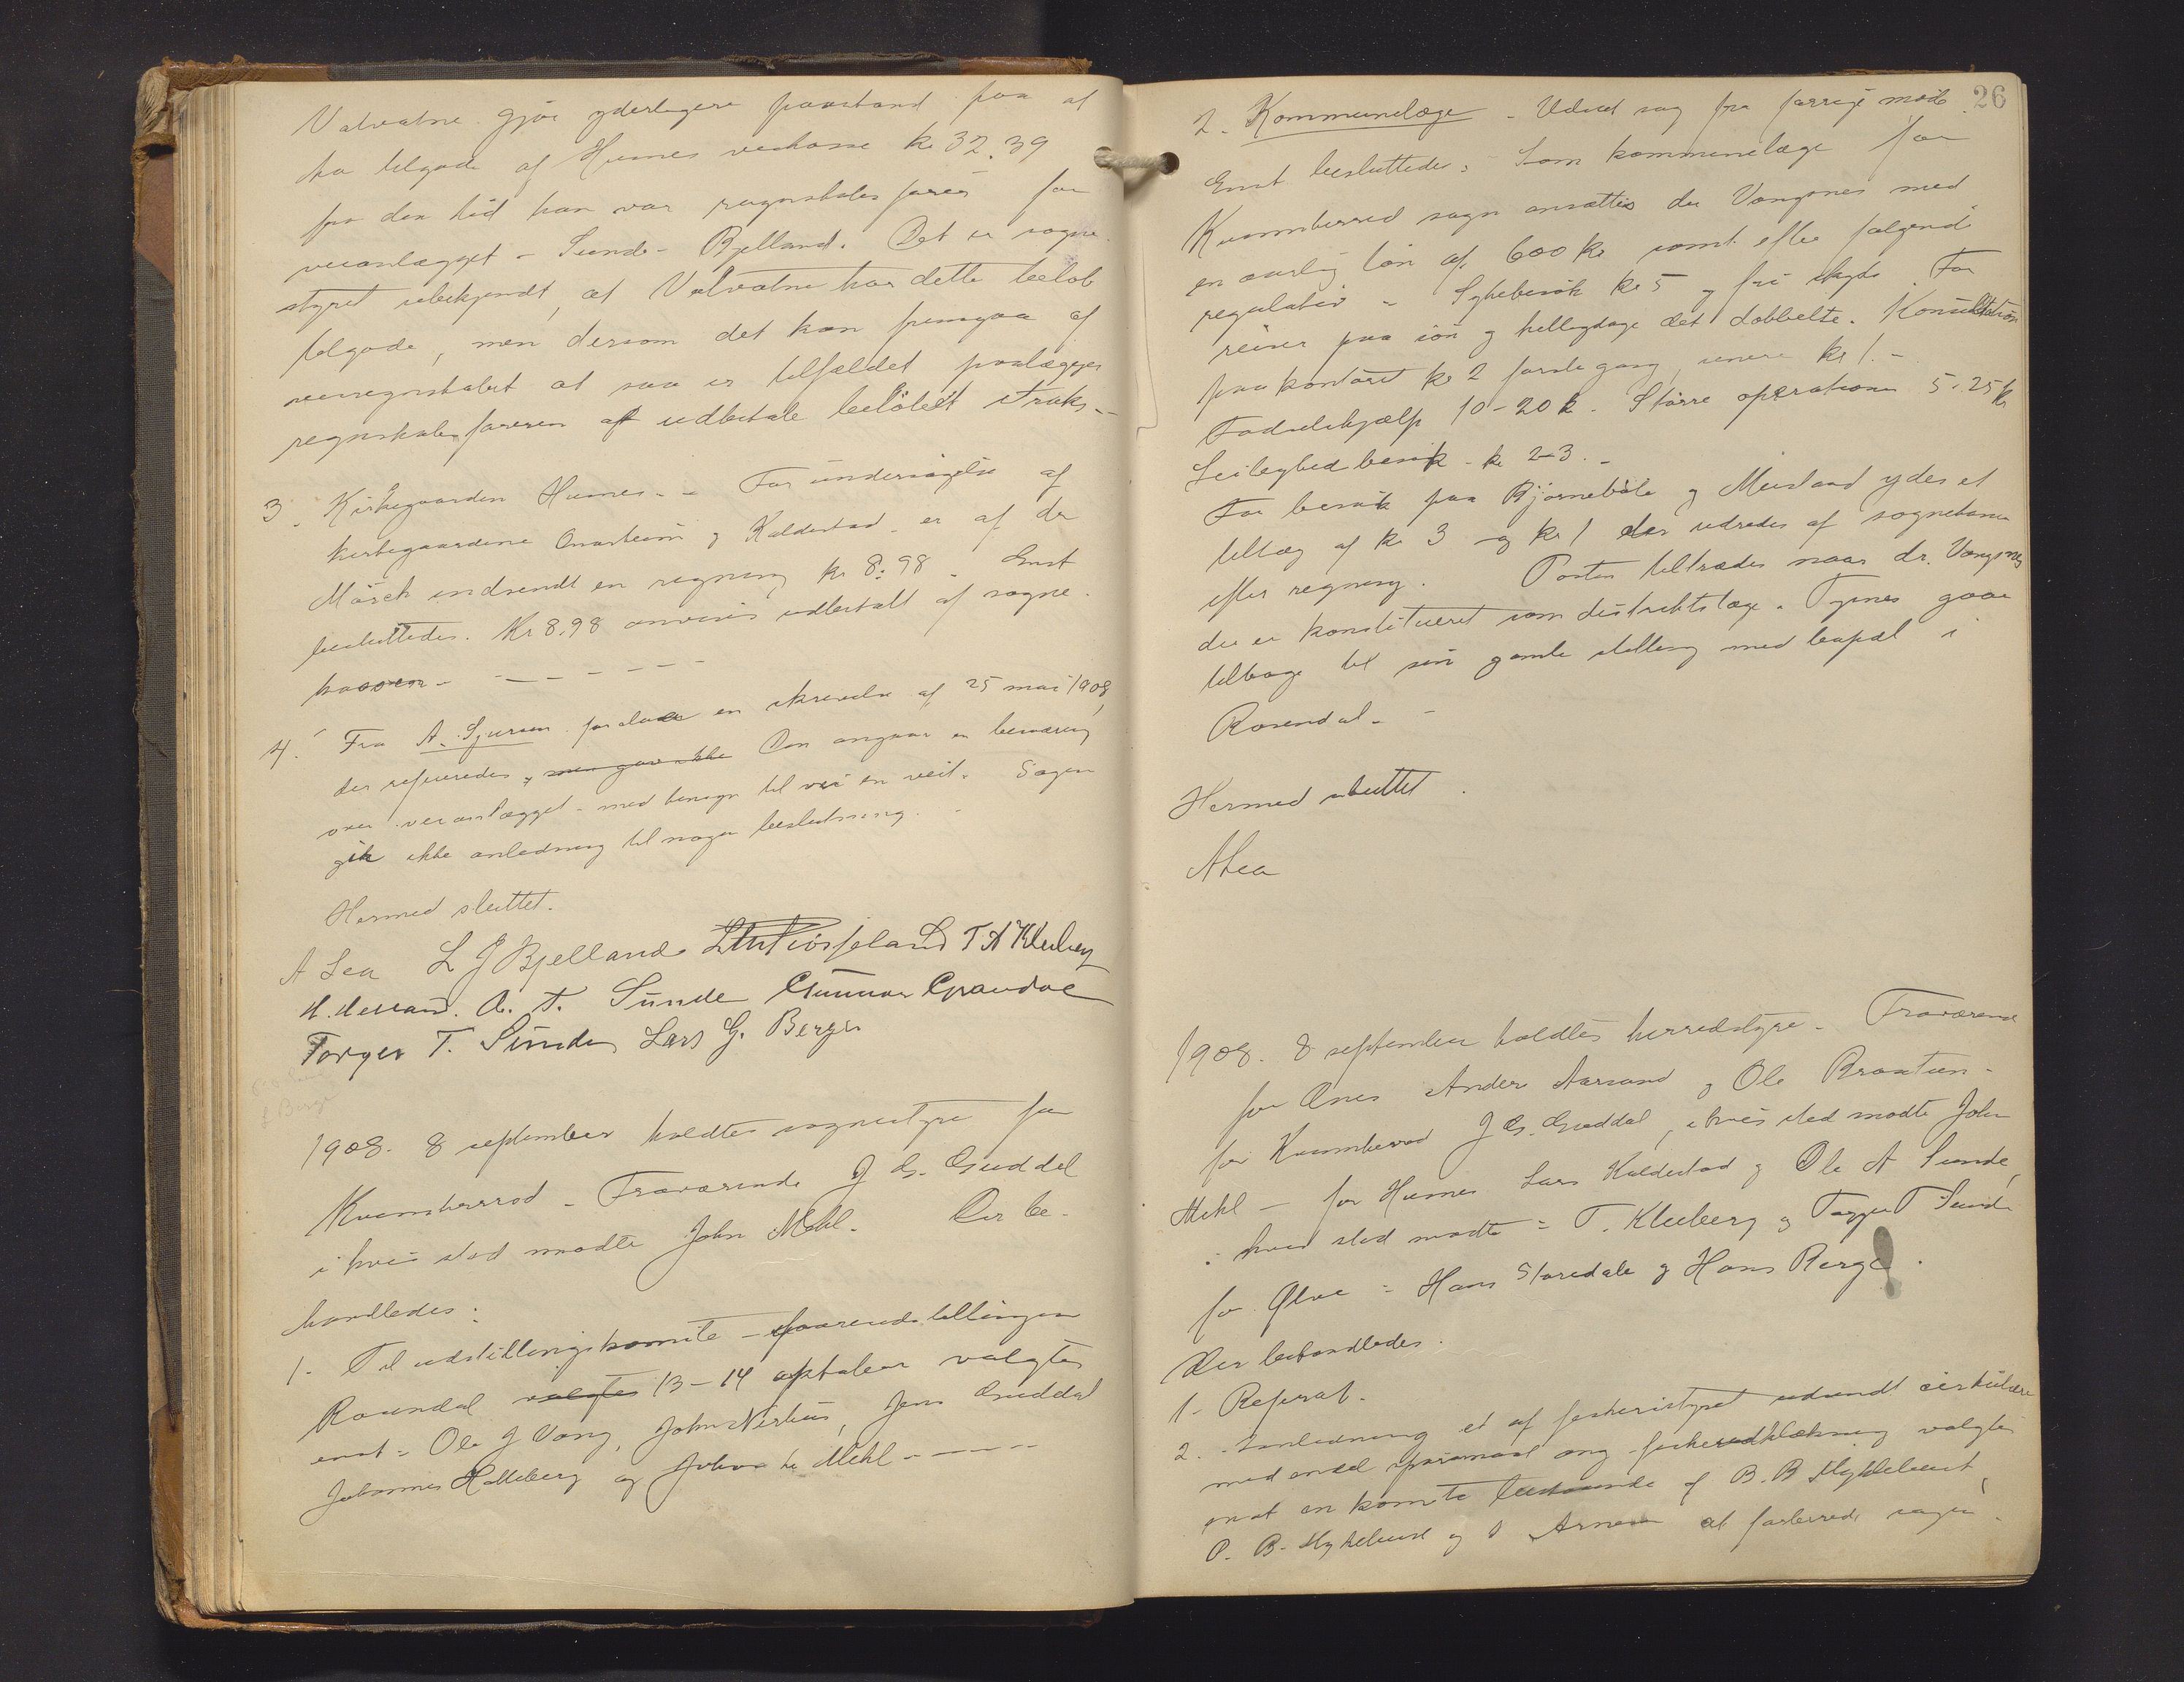 Valvatne gjør yderligere paastand paa at
ha tilgode af Husnes veikasse kr 32.39
fra den tid han var regnskabsfører for
veianlægget - Sunde - Bjelland. Det er sogne-
styret ubekjendt, at Valvatne har dette beløb
tilgode, men dersom det kan fremgaa af
veiregnskabet at saa er tilfældet paalægges
regnskabsføreren at udbetale beløbet straks. -
3. Kirkegaarden Husnes. - For undersøgelse af
kirkegaardene Onarheim og Kaldestad er af dr
Mörch indsendt en regning kr 8.98. Enst
besluttedes. Kr 8.98 anvises udbetalt af sogne-
kassen - - - - - -
4. Fra A. Sjursen forelaa en skrivelse af 25 mai 1908,
der refereredes, men gav ikke Den angaar en bemærkning
over veianlægget - med hensyn til vei en veit. Sagen
gik ikke anledning til nogen beslutning. -
Hermed sluttet.
A Lea L J Bjelland T A Kleiberg
O. T. Sunde Gunnar
Torger T. Sunde Lars G. Berge
1908. 8 september holdtes sognestyre for
Kvinnherred - Fraværende J G. Guddal
i hvis sted mødte John Mehl. Der be-
handledes:
1. Til udstillingskomite - faareudstillingen
Rosendal valgtes 13-14 oktober valgtes
enst = Ole J Vang, John Nerhus, Jens Guddal
Johannes Hatteberg og Johan Mehl - - - -
26
2. Kommunelæge - Udsat sag fra forrige møde
Enst besluttedes: Som kommunelæge for
Kvinnherred sogn ansættes dr Vangsnes med
en aarlig løn af 600 kr samt efter følgende
regulativ = Sykebesøk kr 5 og fri skyds. For
reiser paa søn og helligdage det dobbelte. Konsultation
paa kontoret kr 2 første gang, senere kr 1. -
Fødselshjælp 10-20 kr. Større operationer 5-25 kr
Leilighedsbesøk - kr 2-3. -
For besøk paa Bjørnebøle og Musland ydes et
tillæg af kr 3 og kr 1 der udredes af sognekassen
efter regning. Posten tiltrædes naar dr. Vangsnes
der er konstitueret som distriktslæge. Tynes gaar
tilbage til sin gamle stilling med bopæl i
Rosendal. -
Hermed sluttet.
A Lea
1908. 8 september holdtes herredsstyre. Fraværende
for Ænes Anders Aarsand og Ole Bratteen -
for Kvinnherred J G. Guddal, i hvis sted mødte John
Mehl - for Husnes Lars Kaldestad og Ole A Sunde,
i hvis sted mødte = T. Kleiberg og Torger T Sunde
for Ølve = Hans Storedale og Hans Berge.
Der behandledes.
1. Referat.
2. I anledning et af fiskeristyret udsendt cirkulære
med endel spørsmaal ang. fiskeredklækning valgtes
enst en komite bestaaende af B. B Myklebust,
P. B. Myklebust og O Arnesen at forberede sagen.